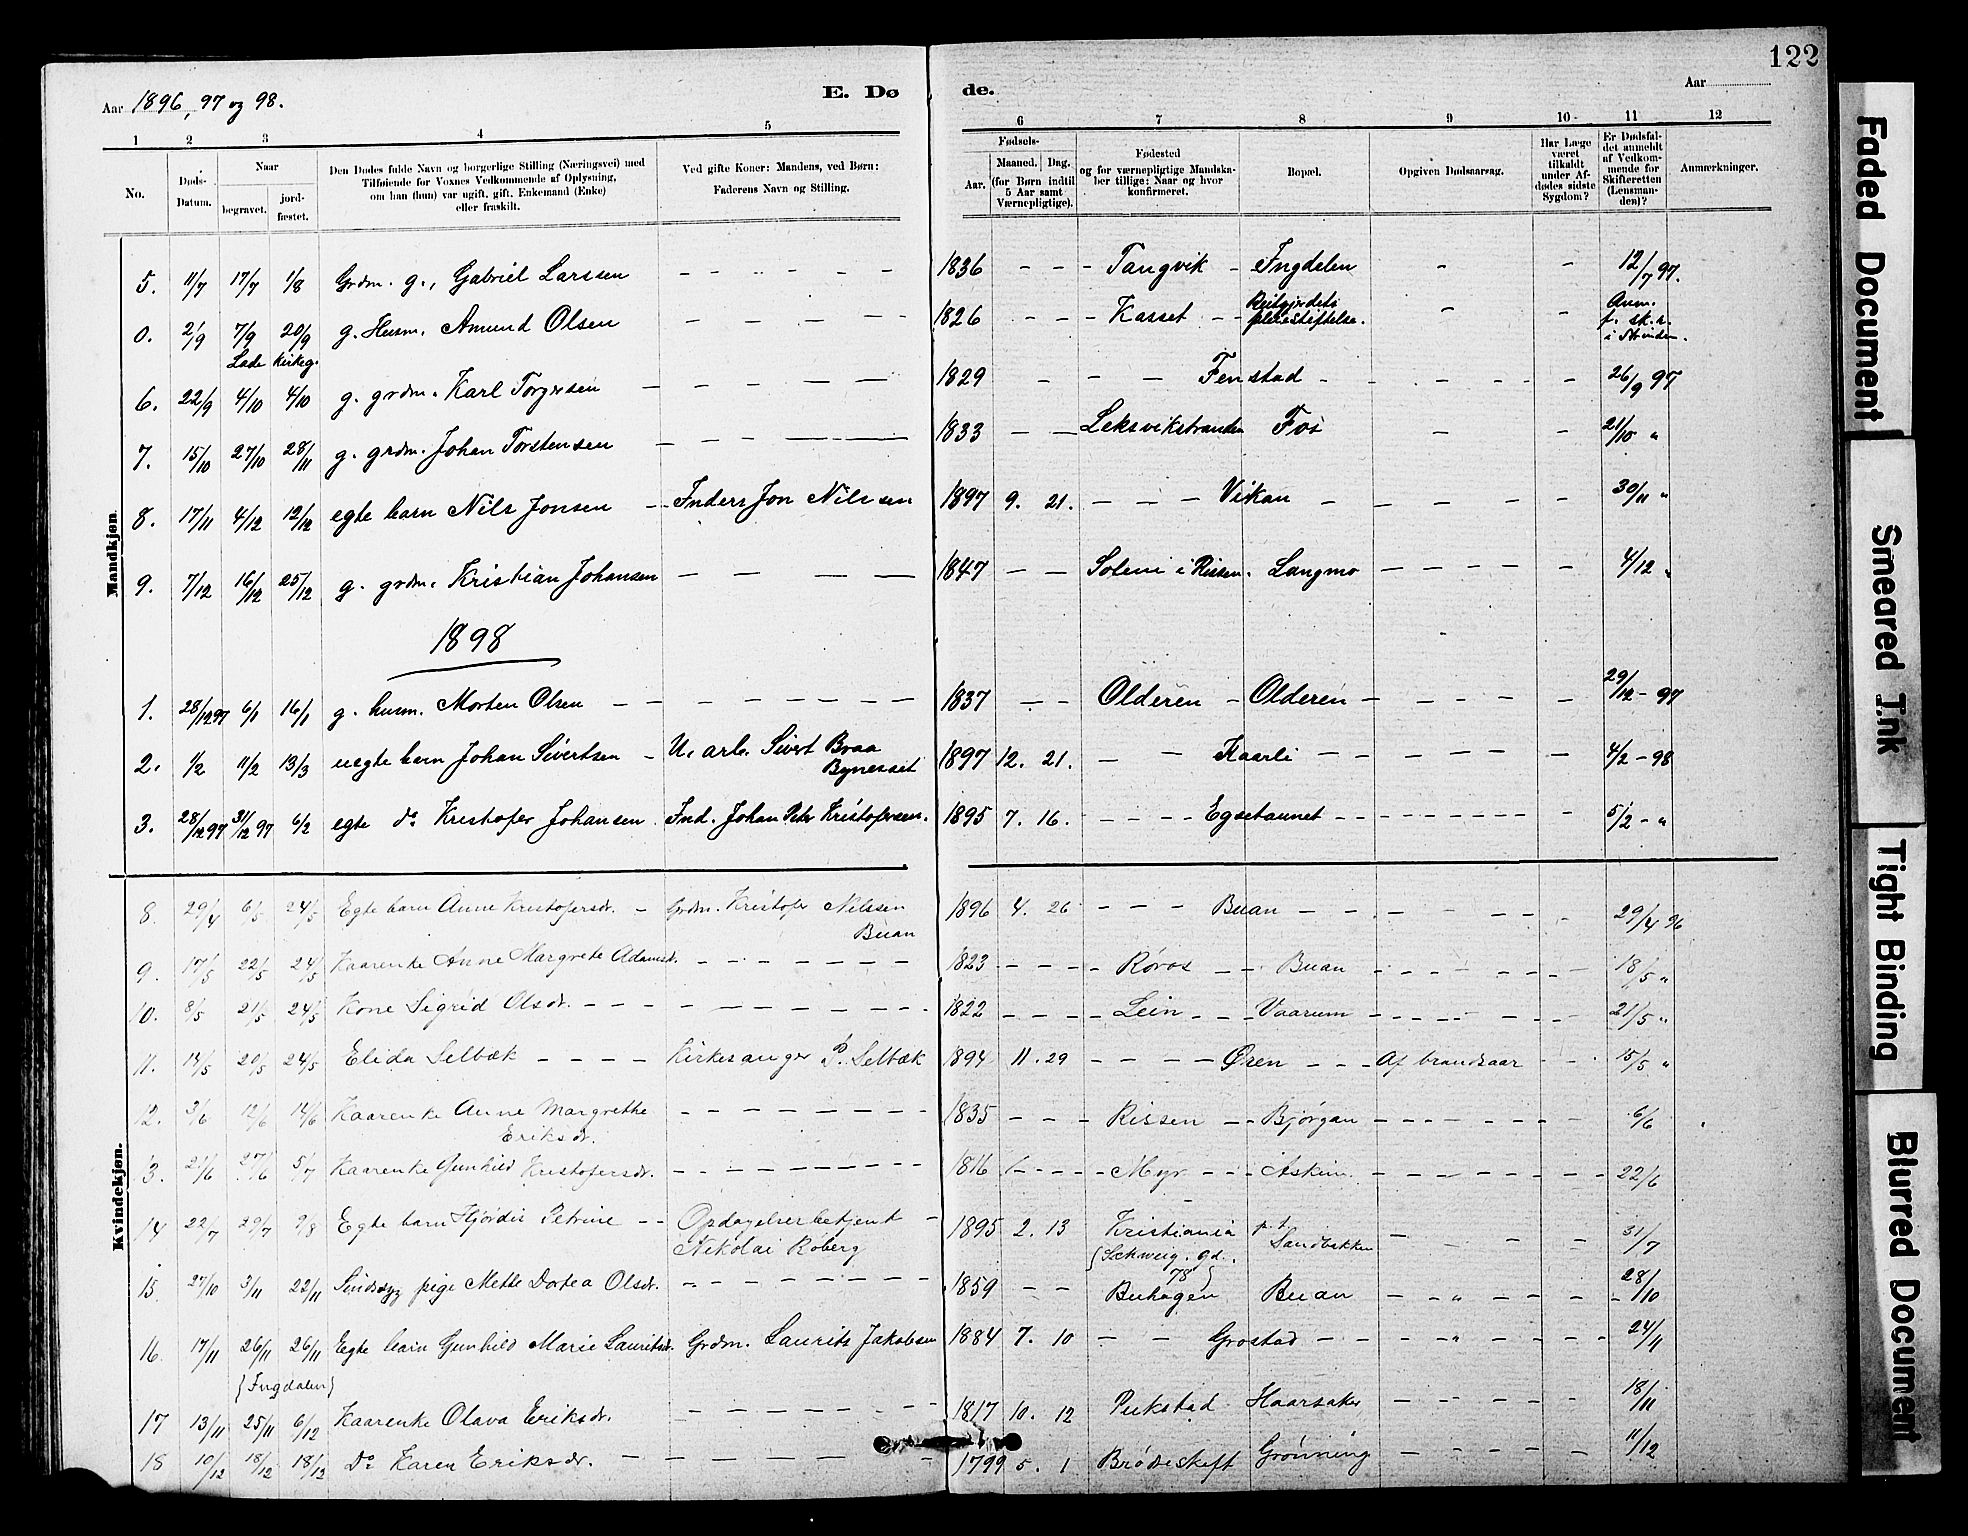 122
Aar 1896, 97 og 98.
E. Dø
de.
Aar
1 2 3 4 5 6 7 8 9 10 11 12
No.
Døds-Datum.
Naar
begravet.
jord-fæstet.
Den Dødes fulde Navn og borgerlige Stilling (Næringsvei) med
Tilføiende for Voxnes Vedkommende af Oplysning,
om han (hun) var ugift, gift, Enkemand (Enke)
eller fraskilt.
Ved gifte Koner: Mandens, ved Børn:
Faderens Navn og Stilling.
Fødsels-
Aar.
Maaned. Dag.
(for Børn indtil
5 Aar samt
Værnepligtige).
Fødested
og for værnepligtige Mandska-
ber tillige: Naar og hvor
konfirmeret.
Bopæl.
Opgiven Dødsaarsag.
Har Læge
været
tilkaldt
under Af-
dødes sidste
Sygdom?
Er Dødsfal-
det anmeldt
af Vedkom-
mende for
Skifteretten
(Lensman-
den)?
Anmærkninger.
Mandkjøn.
5. 11/7 17/7 1/8 Grdm. g., Gabriel Larssen 1836 Tangvik Ingdalen 12/7 97.
0. 2/9 7/9 20/9 g. Husm. Amund Olsen 1826 Kasset 
Lade Kirkeg.
Anm. f. sk. r. i Strinden.
6. 22/9 4/10 4/10 g. grdm. Karl Torgersen 1829 Fenstad 26/9 97
7. 15/10 27/10 28/11 g. grdm. Johan Torstensen 1833 Leksvikstranden Fos 21/10 "
8. 17/11 4/12 12/12 egte barn Nils Jonsen Inders Jon Nilssen 1897 9. 21. Vikan 30/11 "
9. 7/12 16/12 25/12 g. grdm. Kristian Johansen 1847 Solem i Rissen. Langmo 4/12 "
1898
1. 28/12 97 6/1 16/1 g. husm. Morten Olsen 1837 Olderen Olderen 29/12 - 97
2. 1/2 11/2 13/3 uegte barn Johan Sivertsen U. arb. Sivert Braa Bynesset 1897 12. 21. Kaarli 4/2 - 98
3. 28/12 97 31/12 97 6/2 egte do Kristofer Johansen Ind. Johan Peter Kristofersen. 1895 7. 16. Egsetaunet 5/2 - "
Kvindekjøn.
8. 29/4 6/5 24/5 Egte barn Anne Kristofersdr. Grdm. Kristofer Nilssen Buan 1896 4. 26 Buan 29/4 96
9. 17/5 22/5 24/5 Kaarenke Anne Margrete Adamsdr. 1823 Røros Buan 18/5 "
10. 8/5 21/5 24/5 Kone Sigrid Olsdr. 1822 Lein Vaarum 21/5 "
11. 14/5 20/5 24/5 Elida Selbæk Kirkesanger P. Selbæk 1894 11. 29 Øren Af brandsaar 15/5 "
12. 3/6 12/6 14/6 Kaarenke Anne Margrethe Eriksdr. 1835 Rissen Bjørgan 6/6
13. 21/6 27/6 5/7 Kaarenke Gunhild Kristofersdr. 1816 Myr Askim 22/6
14 22/7 29/7 9/8 Egte barn Hjørdis Petrine Opdagelsesbetjent Nikolai Røberg 1895 2. 13 Kristiania {Schweig. gd. 78} p. t. Sandbakken 31/7
15. 27/10 3/11 22/11 Sindssyg pige Mette Dortea Olsdr. 1859 Buhagen Buan " 28/10
16. 17/11 26/11 26/11 Egte barn Gunhild Marie Lauritsdr. Grdm. Laurits Jakobsen 1884 7. 10 Grostad " 24/11
{Ingdalen}
17 13/11 25/11 6/12 Kaarenke Olava Eriksdr. 1817 10. 12 Pukstad Haarsaker 18/11
18 10/12 18/12 18/12 Do Karen Eriksdr. 1799 5. 1 Brødreskift Grønning 11/12
Faded Document
Smeared Ink
Tight Binding
Blurred Document